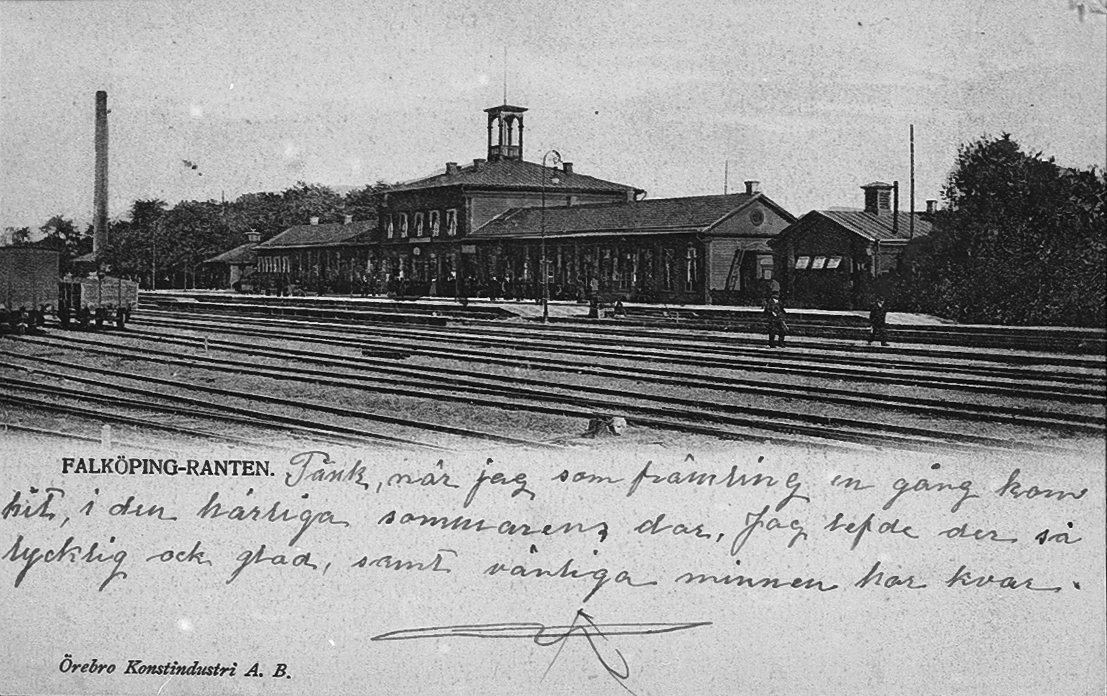 FALKÖPING-RANTEN. Tänk, när jag som främling en gång kom
hit, i den härliga sommarens dar, Jag lefde der så
lycklig ock glad, samt vänliga minnen har kvar.
Örebro Konstindustri A. B.